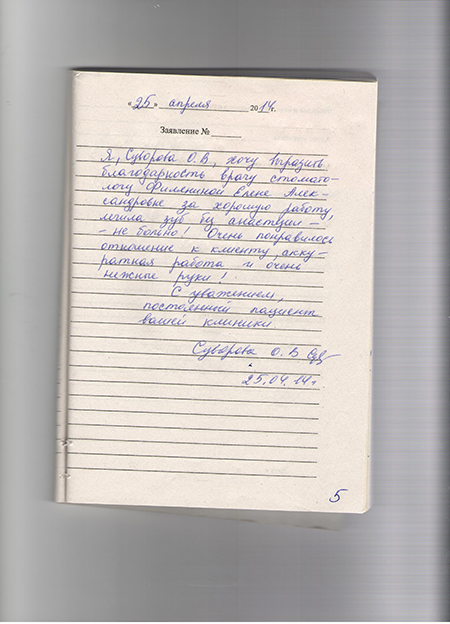 «25» апреля 2014г.
Заявление № ____
Я, Суворова О.В, хочу выразить
благодарность врачу стомато-
логу Филениной Елене Алек-
сандровне за хорошую работу,
лечила зуб без анастезии -
- не больно! Очень понравилось
отношение к клиенту, акку-
ратная работа и очень
нежные руки!
С уважением,
постоянный пациент
вашей клиники
Суворова О.В
25.04.14г
5